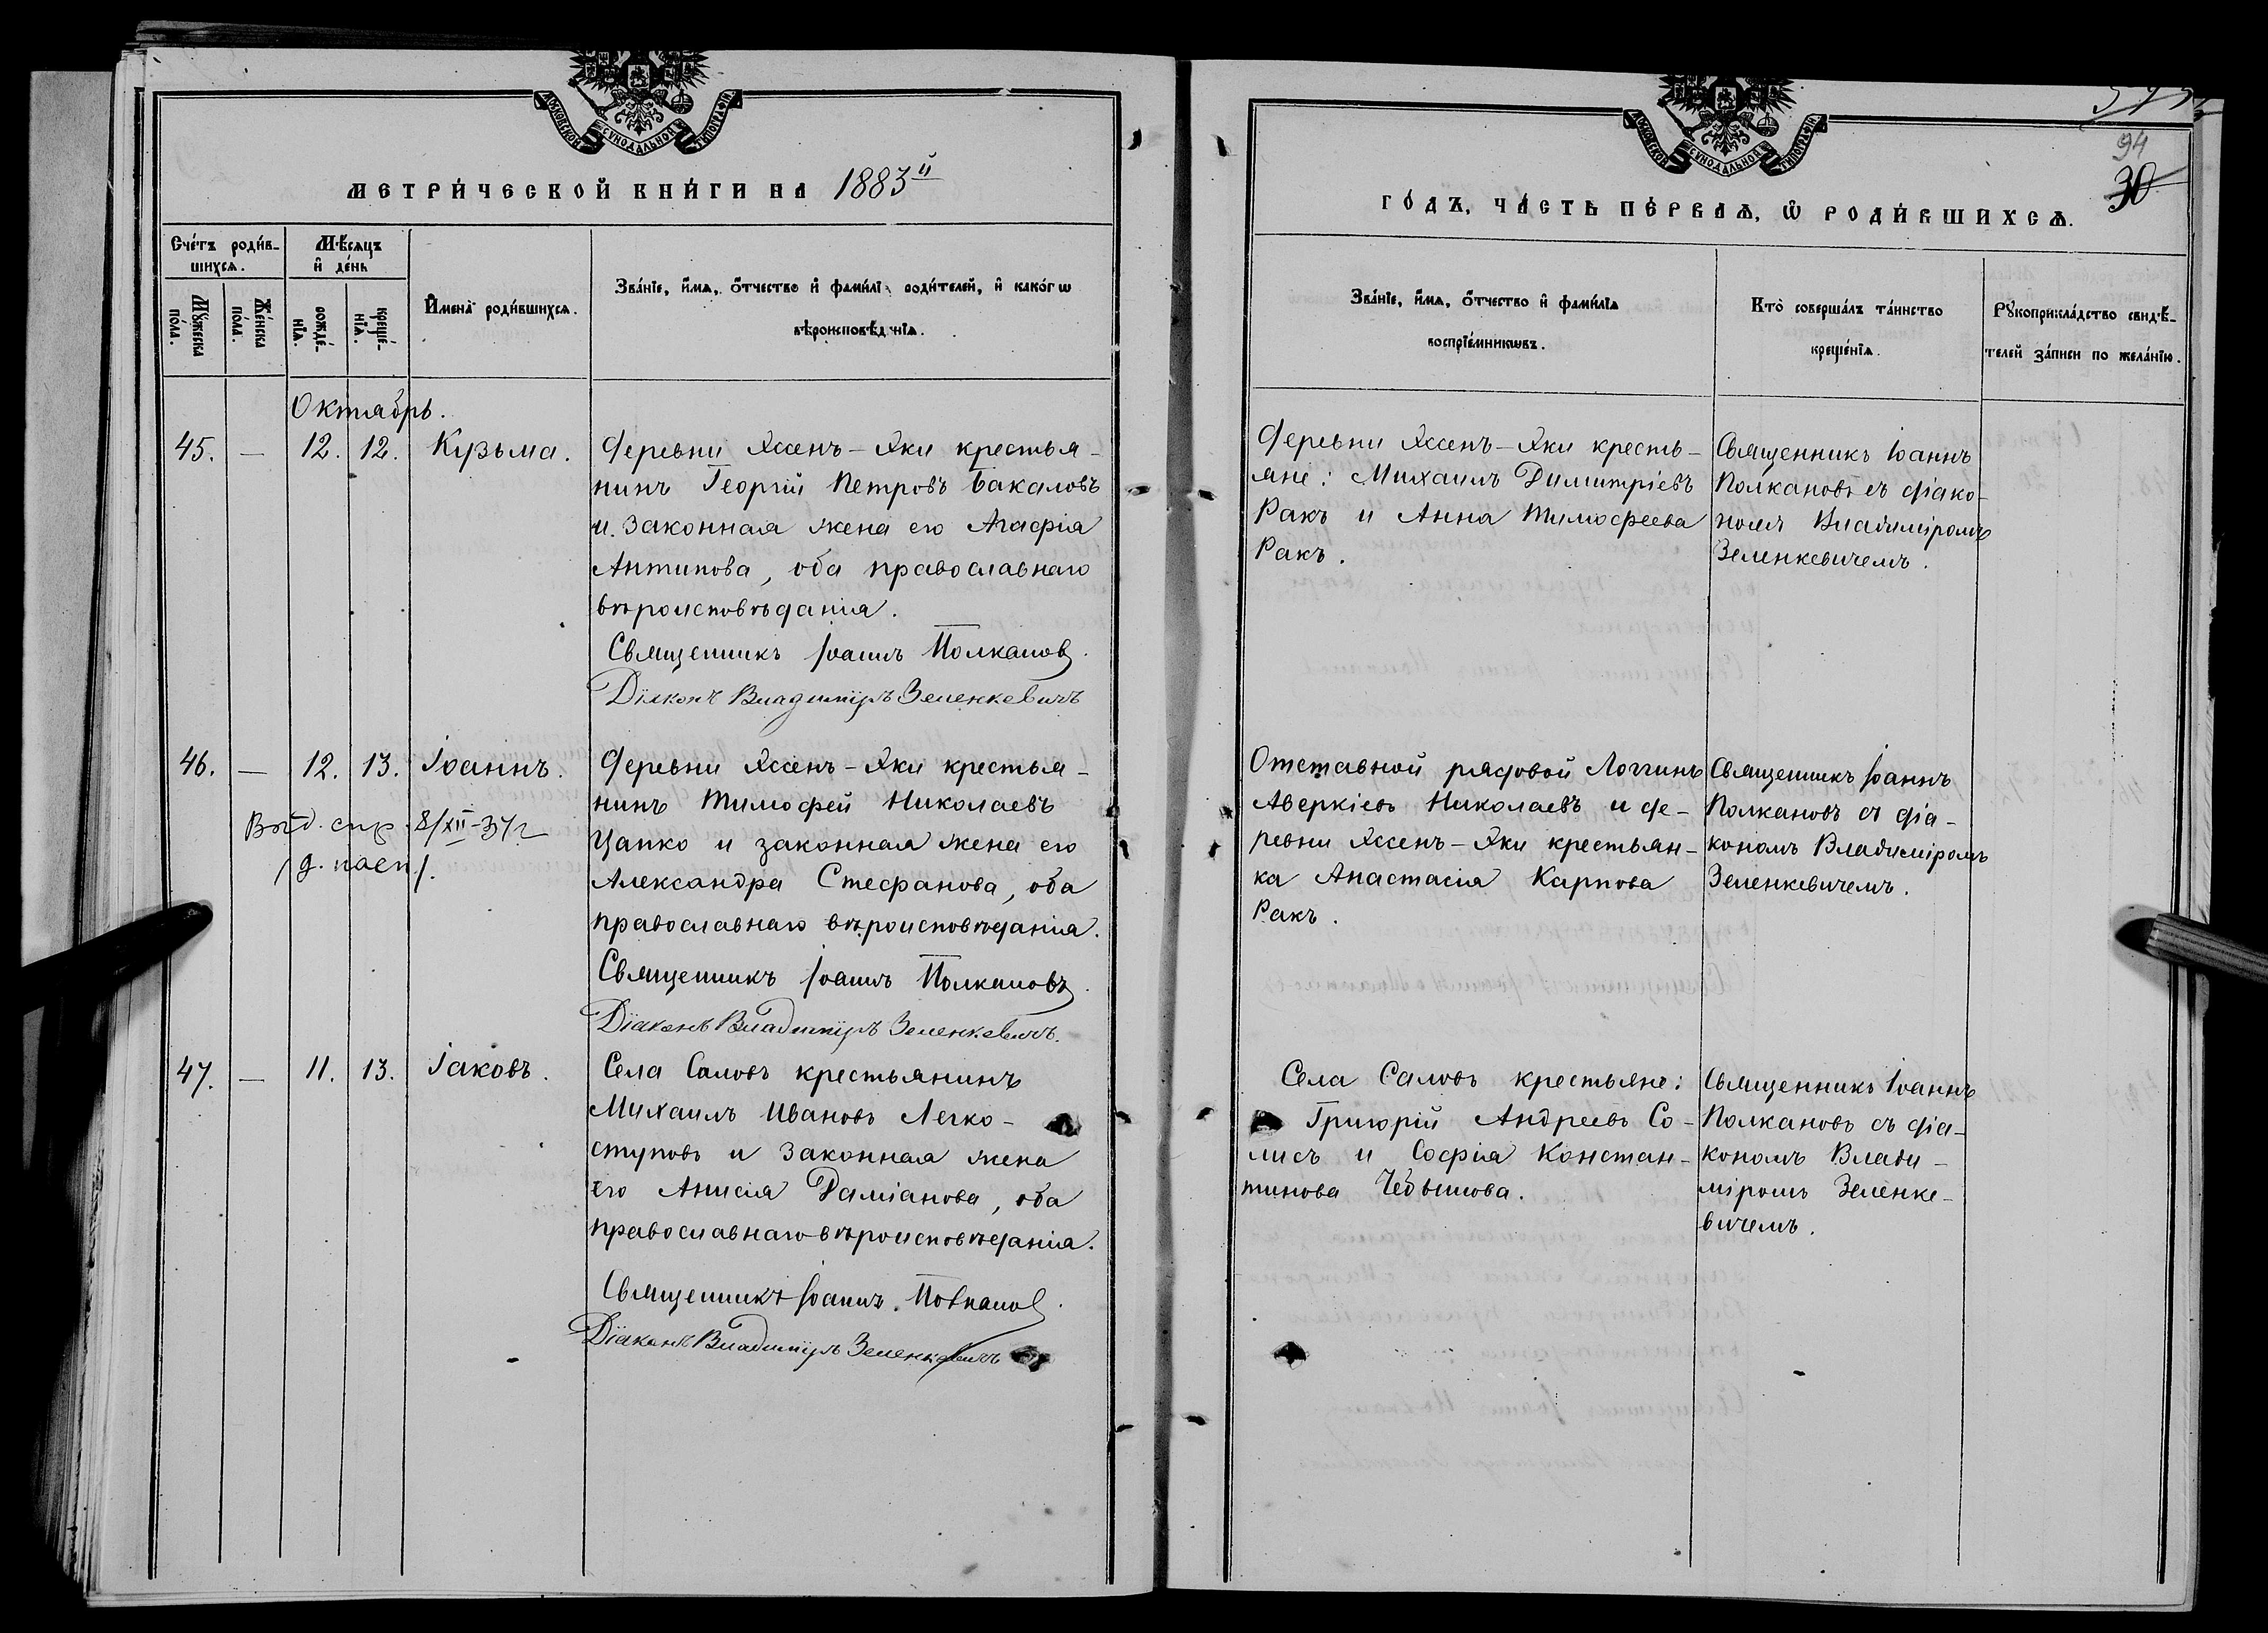 МОСКОВСКОЙ СУНОДАЛЬНОЙ ТИПОГРАФІИ
МЕТРИ́ЧЕСКОЙ КНИ́ГИ НА 1883й
Сче́тъ роди́в-
шихсѧ.
Мѣ́сѧцъ
и҆ де́нь
Мꙋ́жеска
по́ла.
Же́нска
по́ла.
рожде́-
нїѧ.
креще́-
нїѧ.
И҆мена̀ роди́вшихсѧ.
Зва́нїе, и҆́мѧ, ѻ҆́тчество и҆ фами́лї роди́телей, и҆ како́гѡ
вѣроисповѣ́д нїѧ.
Октябрь.
45. — 12. 12. Кузьма.
Деревни Яссенъ-Яки крестья-
нинъ Георгій Петровъ Бакаловъ
и законная жена его Агафія
Антипова, оба православнаго
вѣроисповѣданія.
Священникъ Іоаннъ Полкановъ.
Діаконъ Владиміръ Зеленкевичъ
46. — 12. 13. Іоаннъ.
Выд. спр. 8/XII-37г
/д. пасп./.
Деревни Яссенъ-Яки крестья-
нинъ Тимофей Николаевъ
Цапко и законная жена его
Александра Стефанова, оба
православнаго вѣроисповѣданія.
Священникъ Іоаннъ Полкановъ.
Діаконъ Владиміръ Зеленкевичъ.
47. — 11. 13. Іаковъ.
Села Саловъ крестьянинъ
Михаилъ Ивановъ Легко-
ступовъ и законная жена
его Анисія Даміанова, оба
православнаго вѣроисповѣданія.
Священникъ Іоаннъ Полкановъ.
Діаконъ Владиміръ Зеленкевичъ
МОСКОВСКОЙ СУНОДАЛЬНОЙ ТИПОГРАФІИ
94
30
ГО́ДЪ, ЧА́СТЬ ПЕ́РВАѦ, Ѽ РОДИ́ВШИХСѦ.
Зва́нїе, и҆́мѧ, ѻ҆́тчество и҆ фами́лїѧ
воспрїе́мникѡвъ.
Кто̀ соверша́лъ та́инство
креще́нїѧ.
Рꙋкоприкла́дство свидѣ́-
телей за́писи по жела́нїю.
Деревни Яссенъ-Яки кресть-
яне: Михаилъ Димитріевъ
Ракъ и Анна Тимофеева
Ракъ.
Священникъ Іоаннъ
Полкановъ съ діако-
номъ Владиміромъ
Зеленкевичемъ.
Отставной рядовой Логгинъ
Аверкіевъ Николаевъ и де-
ревни Яссенъ-Яки крестьян-
ка Анастасія Карпова
Ракъ.
Священникъ Іоаннъ
Полкановъ съ діа-
кономъ Владиміромъ
Зеленкевичемъ.
Села Саловъ крестьяне:
Григорій Андреевъ Со-
лисъ и Софія Констан-
тинова Чебышова.
Священникъ Іоаннъ
Полкановъ съ діа-
кономъ Влади-
міромъ Зеленке-
вичемъ.